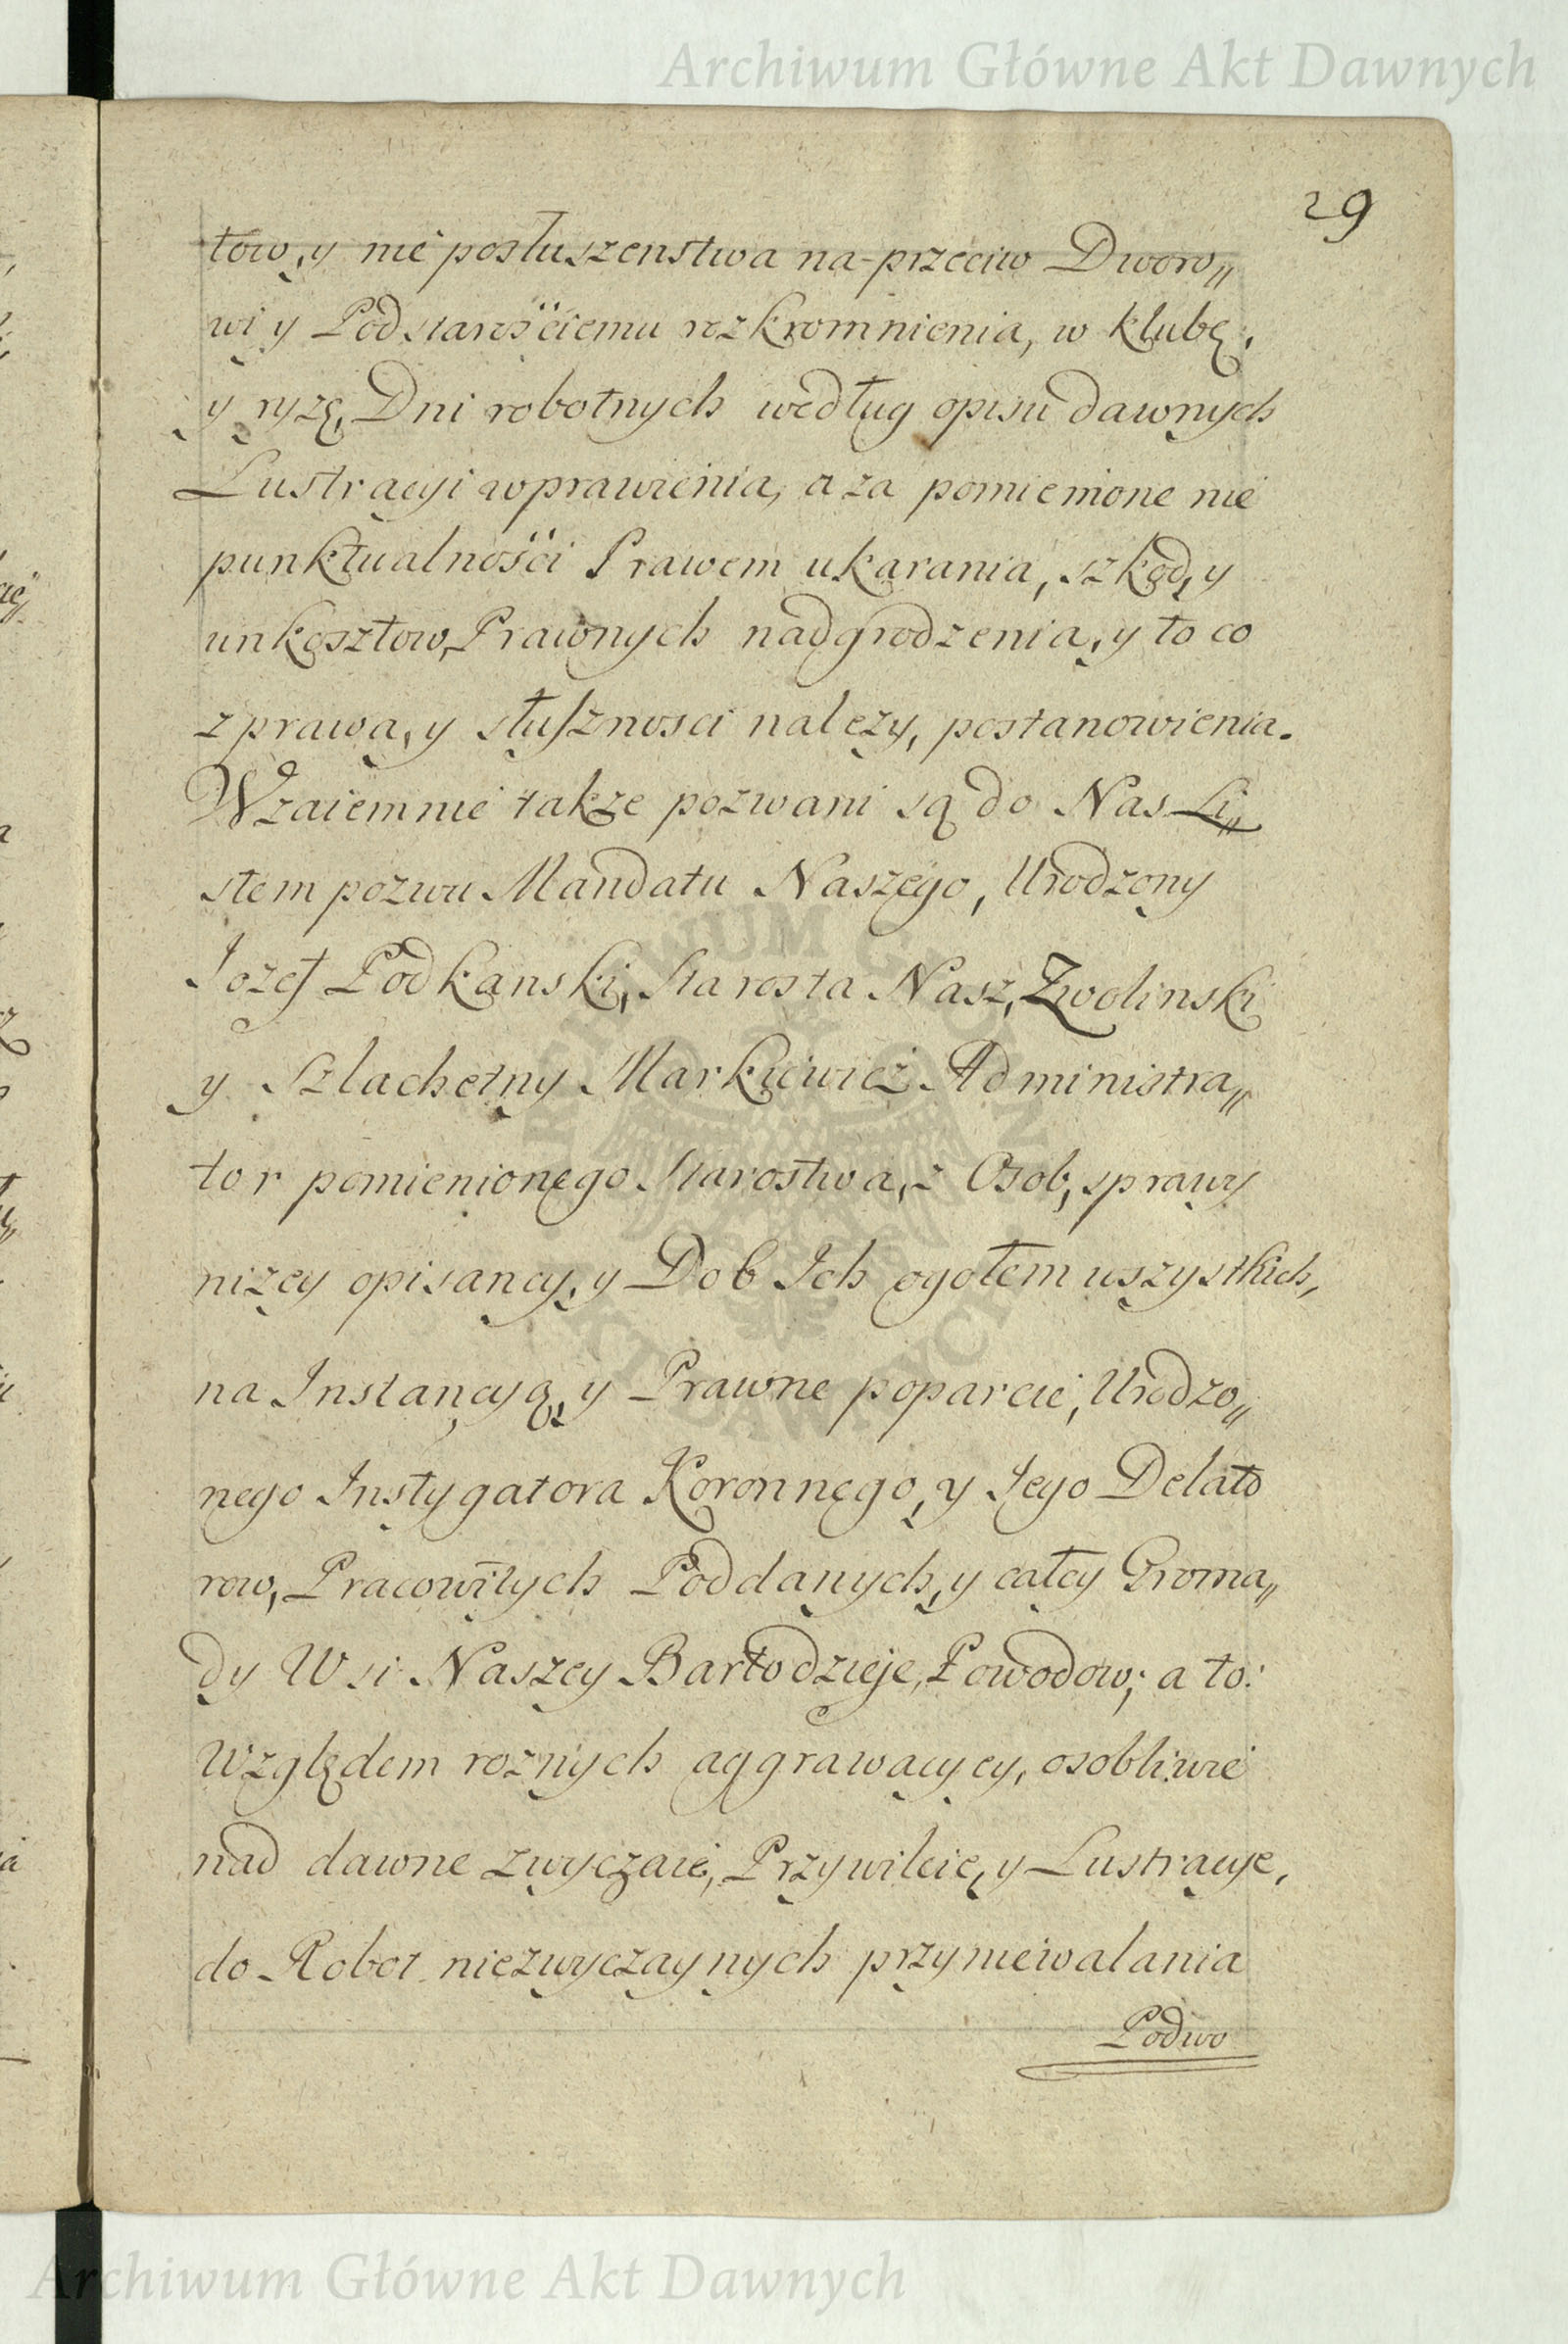 Archiwum Główne Akt Dawnych
29
tow, y nie posłuszenstwa na-przeciw Dworo„
wi y Podstarośćiemu rozkromnienia, w klubę,
y ryzę, Dni robotnych według opisu dawnych
Lustracyi wprawienia, a za pomienione nie
punktualnośći Prawem ukarania, szkod, y
unkosztow, Prawnych nadgrodzenia, y to co
z prawa, y słuszności należy, postanowienia.
Wzaiemnie także pozwani są do Nas Li„
stem pozwu Mandatu Naszego, Urodzony
Iozef Podkanski, Starosta Nasz, Zwolinski
y Szlachetny Markiewicz Administra„
tor pomienionego Starostwa, z Osob, sprawy
niżey opisaney, y Dob Ich ogołem wszystkich,
na Instancyą, y Prawne poparcie, Urodzo„
nego Instygatora Koronnego, y Iego Delato
row, Pracowitych Poddanych, y całey Groma„
dy Wsi Naszey Bartodzieje, Powodow; a to:
Względem roznych aggrawacyey, osobliwie
nad dawne zwyczaie, Przywileie, y Lustracye,
do Robot niezwyczaynych przyniewalania
Podwo
Archiwum Główne Akt Dawnych